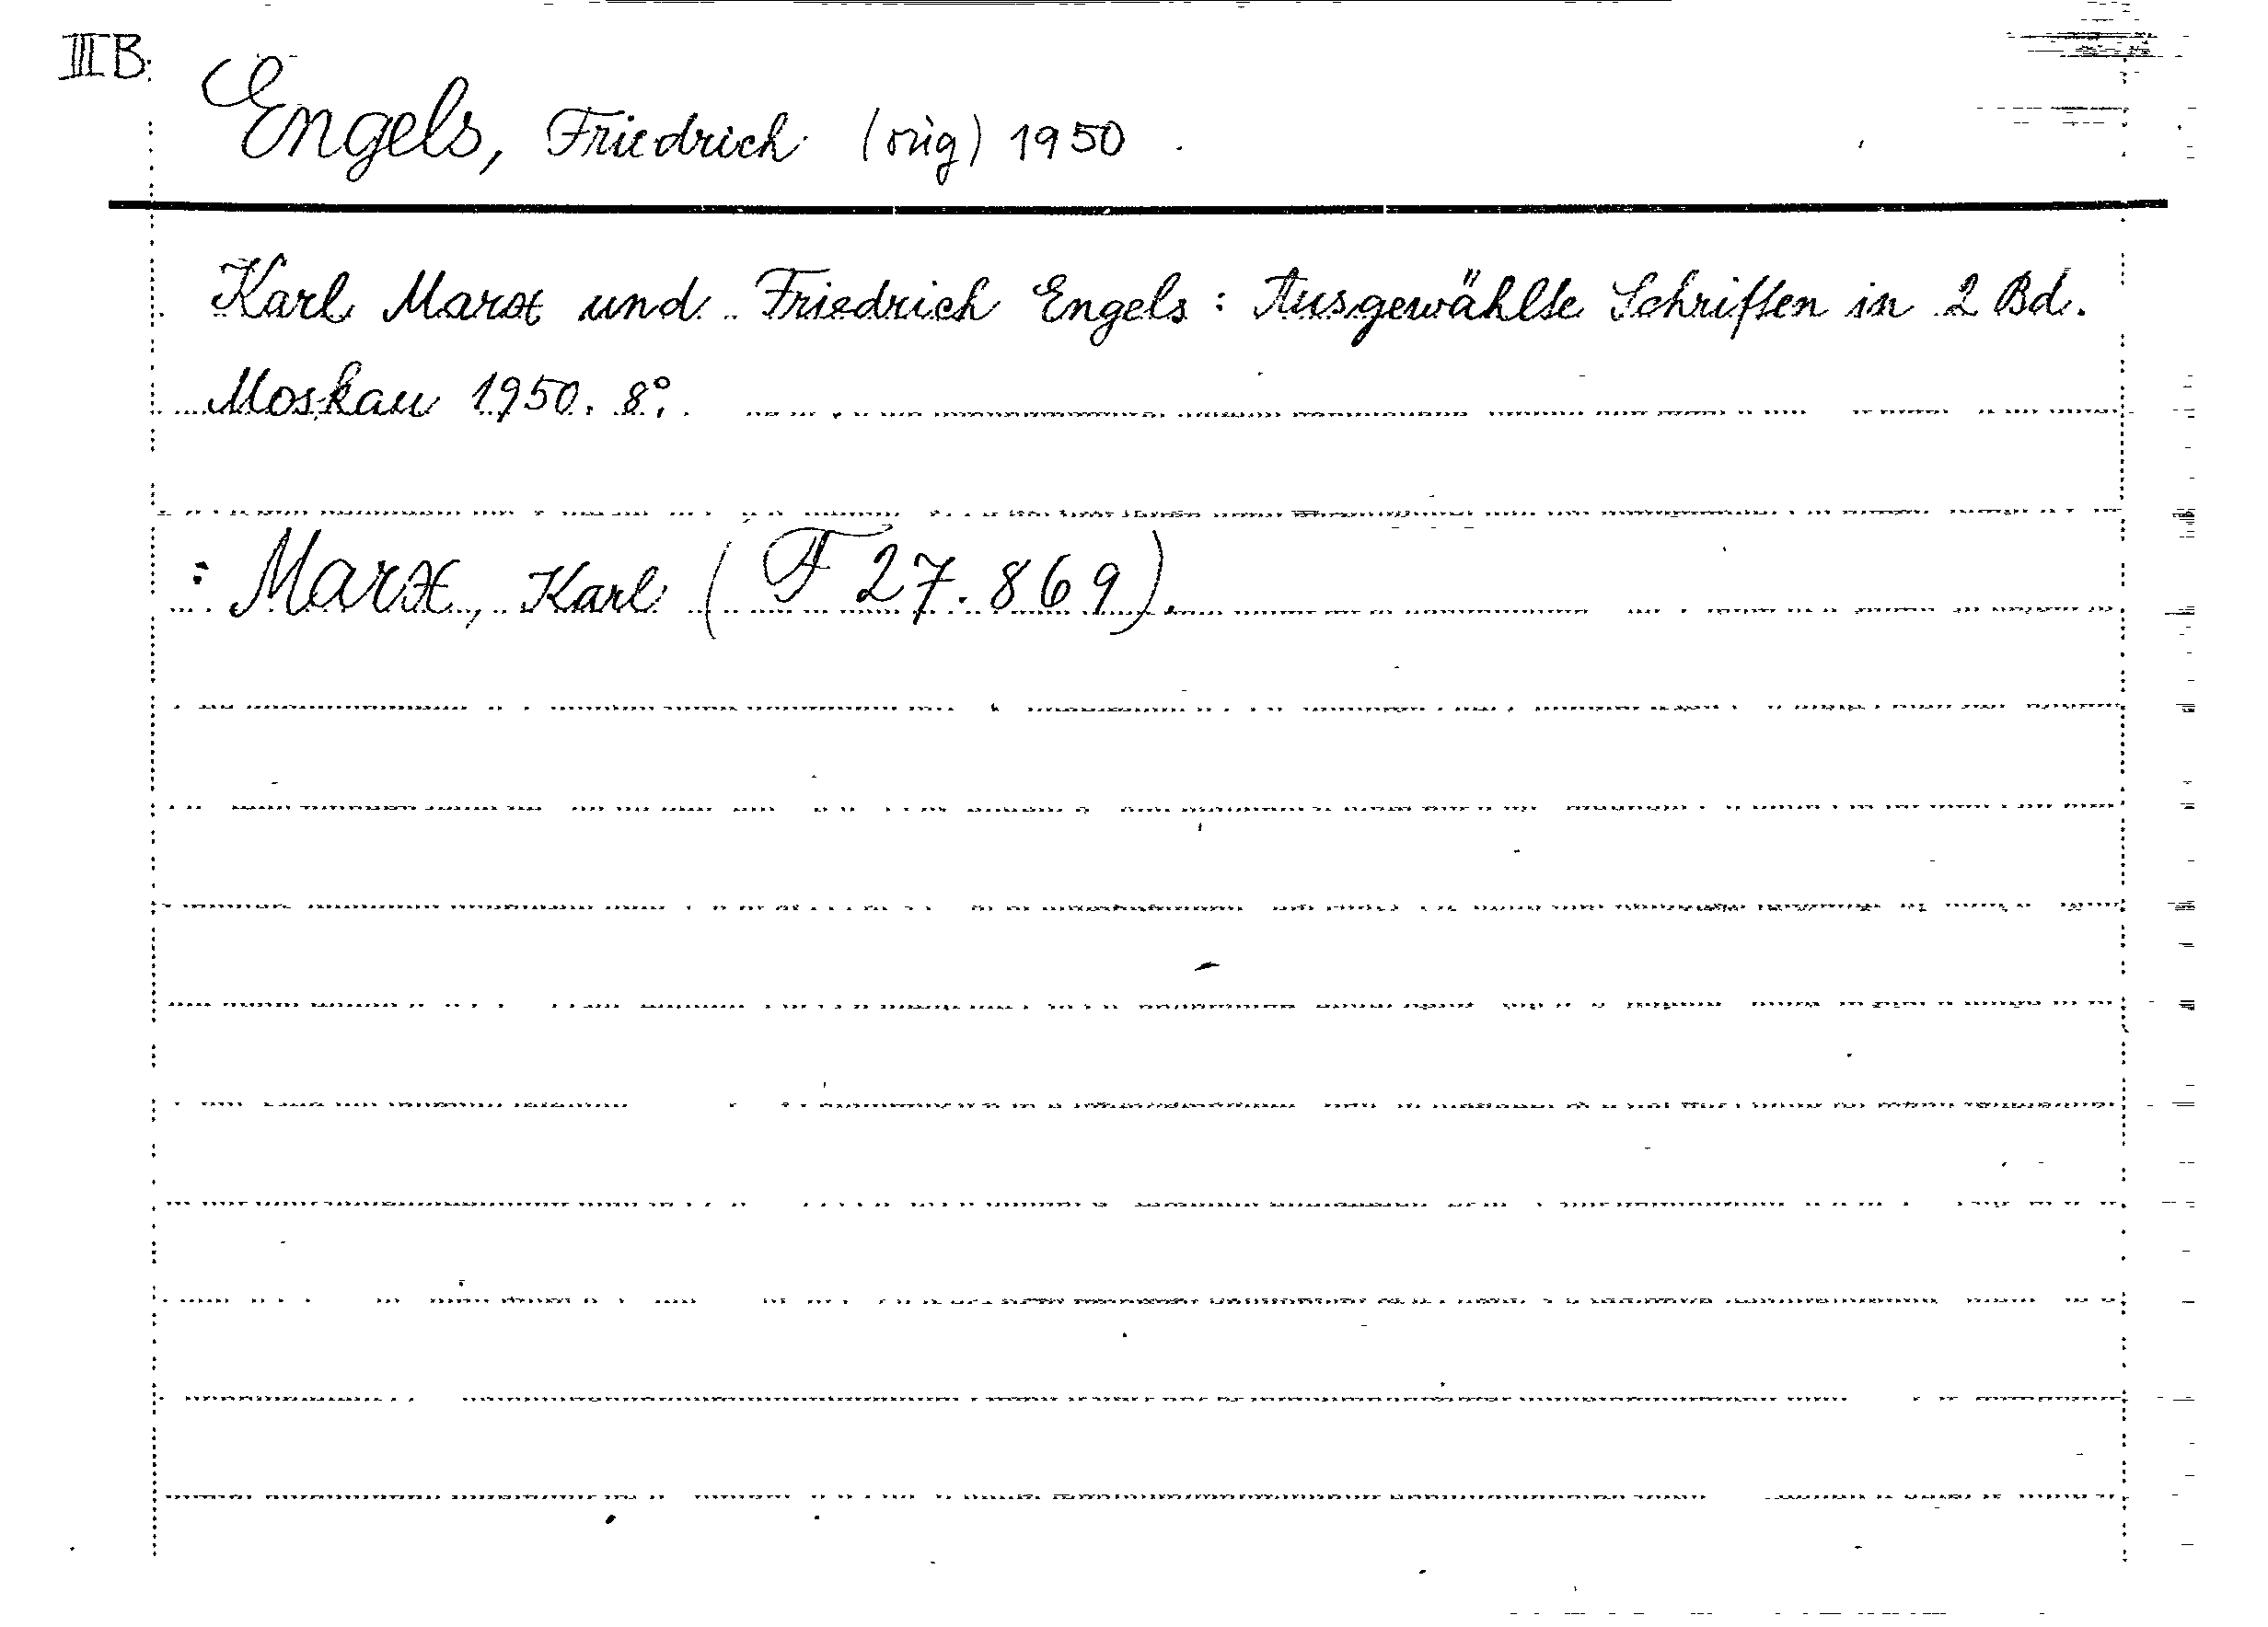 III B.
Engels, Friedrich (orig) 1950
Karl Marx und Friedrich Engels: Ausgewählte Schriften in 2 Bd.
Moskau 1950. 8°.
: Marx, Karl (F 27.869).